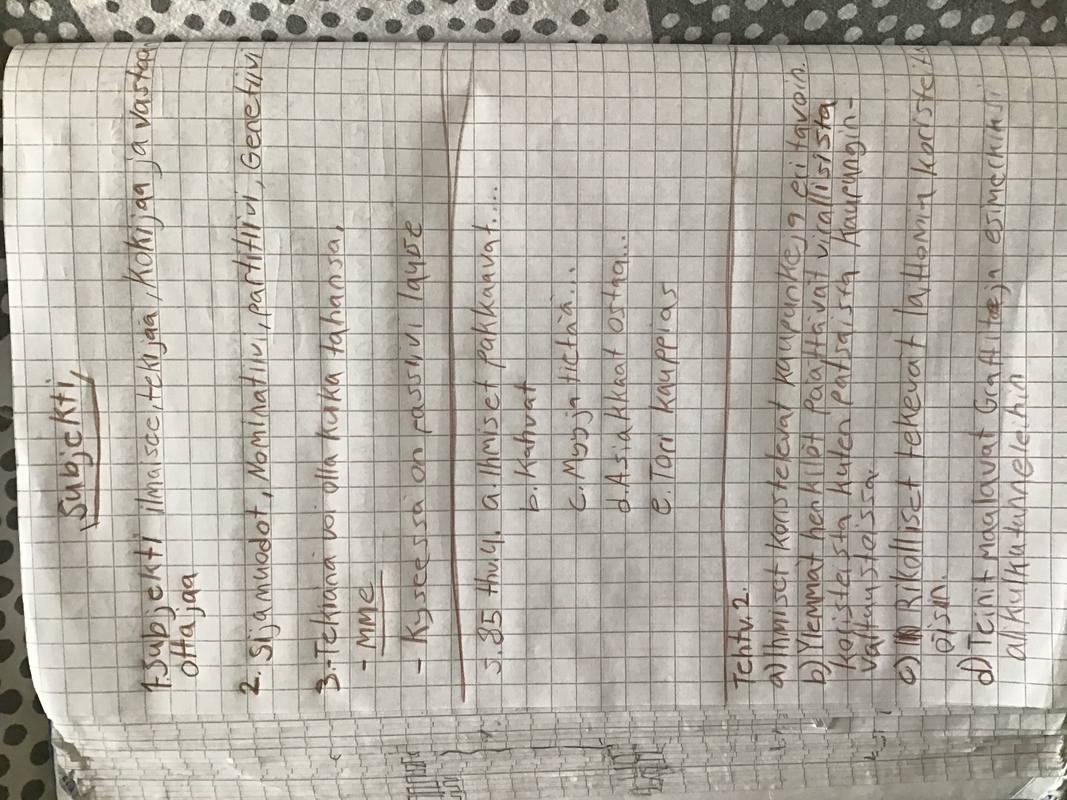 Subjekti
1. Subjekti ilmaisee, tekijää, kokijaa ja vastaan
ottajaa
2. Sijamuodot, Nominatiivi, partitiivi, Genetiivi
3. -Tekiänä voi olla kuka tahansa,
- mme
- Kyseessä on passiivi lause
s.85 thv4. a. Ihmiset pakkaavat....
b. Kahvat
c. Myyjä tietää...
d. Asiakkaat ostaa...
e. Tori kauppias
Tehtv.2.
a) Ihmiset koristelevat kaupunkeja eri tavoin.
b) Yleimmät henkilöt päättävät virallisista
koristeista kuten patsaista kaupungin-
valtuustoissa.
c) Rikolliset tekevät laittomia koristeita
öisin.
d) Teinit maalavat Graffiteja esimerkiksi
alikulkutunneleihin